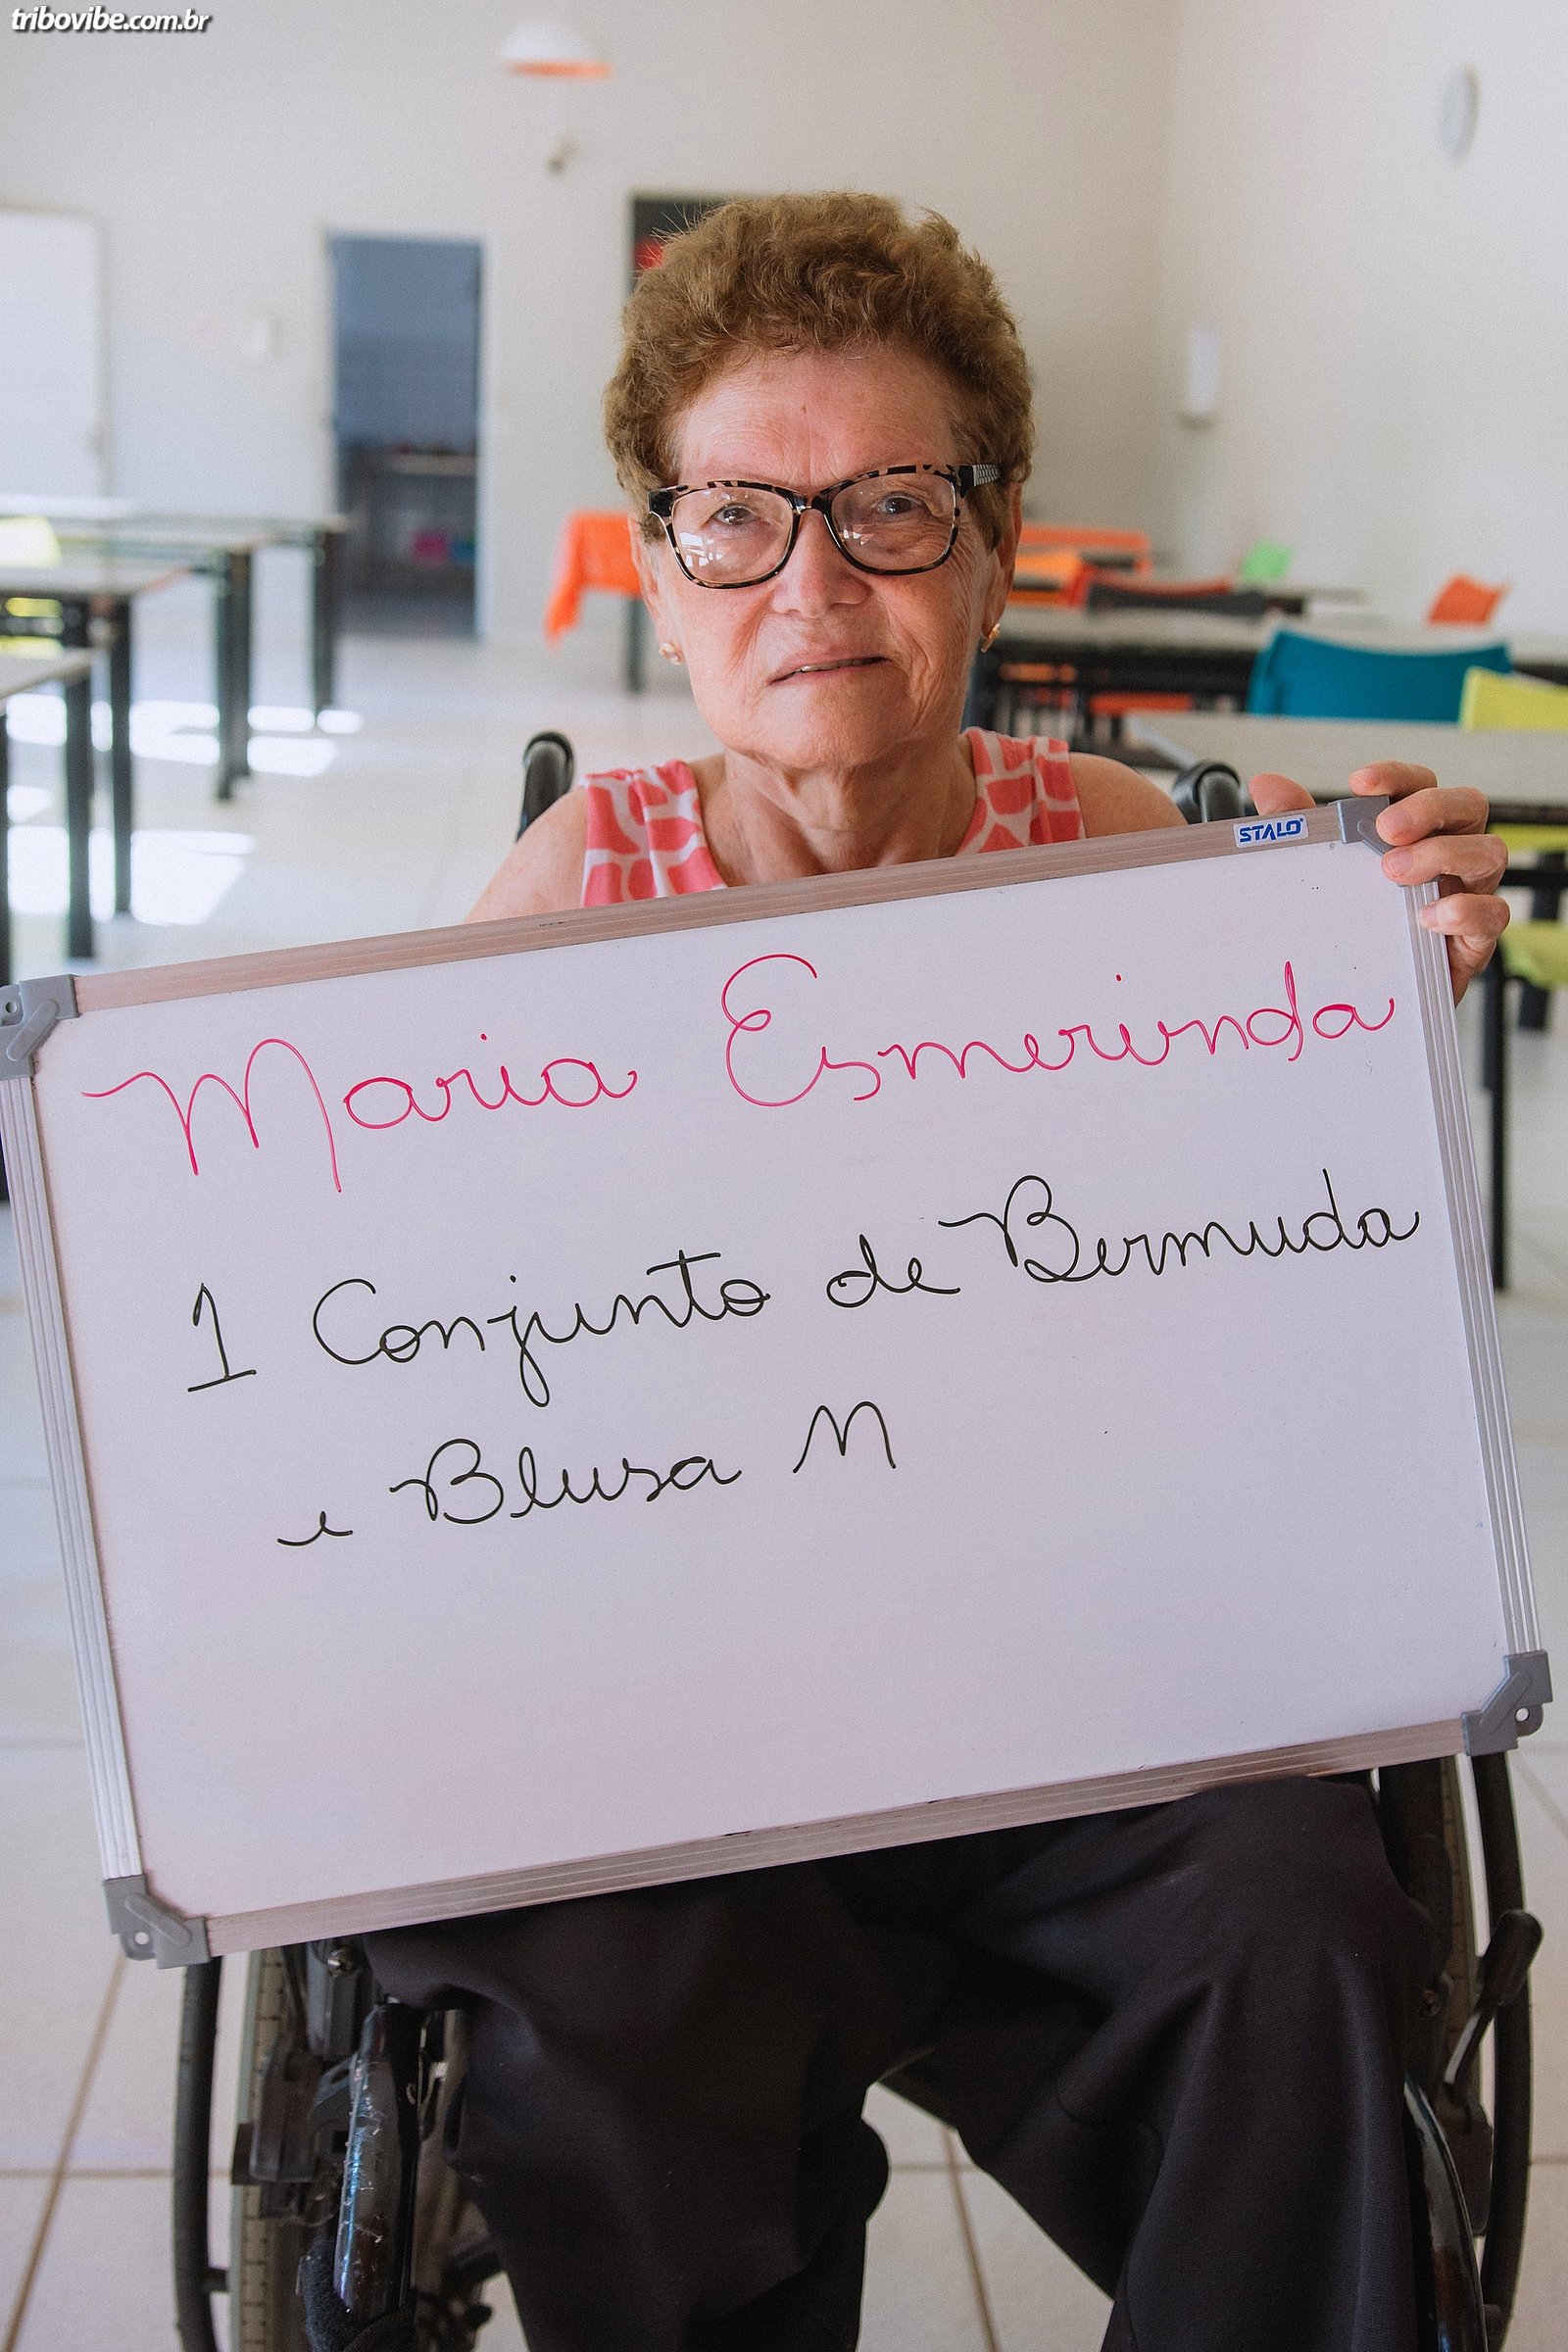 tribovibe.com.br
STALO
Maria Esmerinda
1 Conjunto de Bermuda
e Blusa M